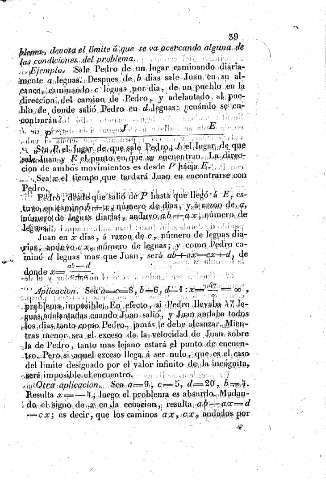 39
blema, denota el límite á que se va acercando alguna de
las condiciones del problema.
Ejemplo. Sale Pedro de un lugar caminando diaria-
mente a leguas. Despues de b dias sale Juan en su al-
cance, caminando c leguas por dia, de un pueblo en la
direccion del camino de Pedro, y adelantado al pue-
blo, de donde salió Pedro en d leguas: ¿cuándo se en-
contrarán?
P J E
Sea P el lugar de que sale Pedro; el lugar de que
sale Juan y E el punto en que se encuentran. La direc-
cion de ambos movimientos es desde P hácia E.
Sea x el tiempo que tardará Juan en encontrarse con
Pedro.
Pedro, desde que salió de P hasta que llegó á E, es-
tuvo en camino b+x número de dias, y á razon de a,
número de leguas diarias, anduvo ab+ax, número de
leguas.
Juan en x dias, á razon de c, número de leguas dia-
rias, anduvo cx, número de leguas; y como Pedro ca-
minó d leguas mas que Juan, será ab+ax=cx+d, de
donde x=
Aplicacion. Sea a=c=8, b=6, d=1: x= =∞,
problema imposible. En efecto, si Pedro llevaba 47 le-
guas adelantadas cuando Juan salió, y Juan andaba todos
los dias tanto como Pedro, jamás le debe alcanzar. Mien-
tras menor sea el exceso de la velocidad de Juan sobre
la de Pedro, tanto mas lejano estará el punto de encuen-
tro. Pero si aquel exceso llega á ser nulo, que es el caso
del límite designado por el valor infinito de la incógnita,
será imposible el encuentro.
Otra aplicacion. Sea a=9, c=5, d=20, b=4.
Resulta x=-4; luego el problema es absurdo. Mudan-
do el signo de x en la ecuacion, resulta ab-ax=d
-cx; es decir, que los caminos ax, cx, andados por